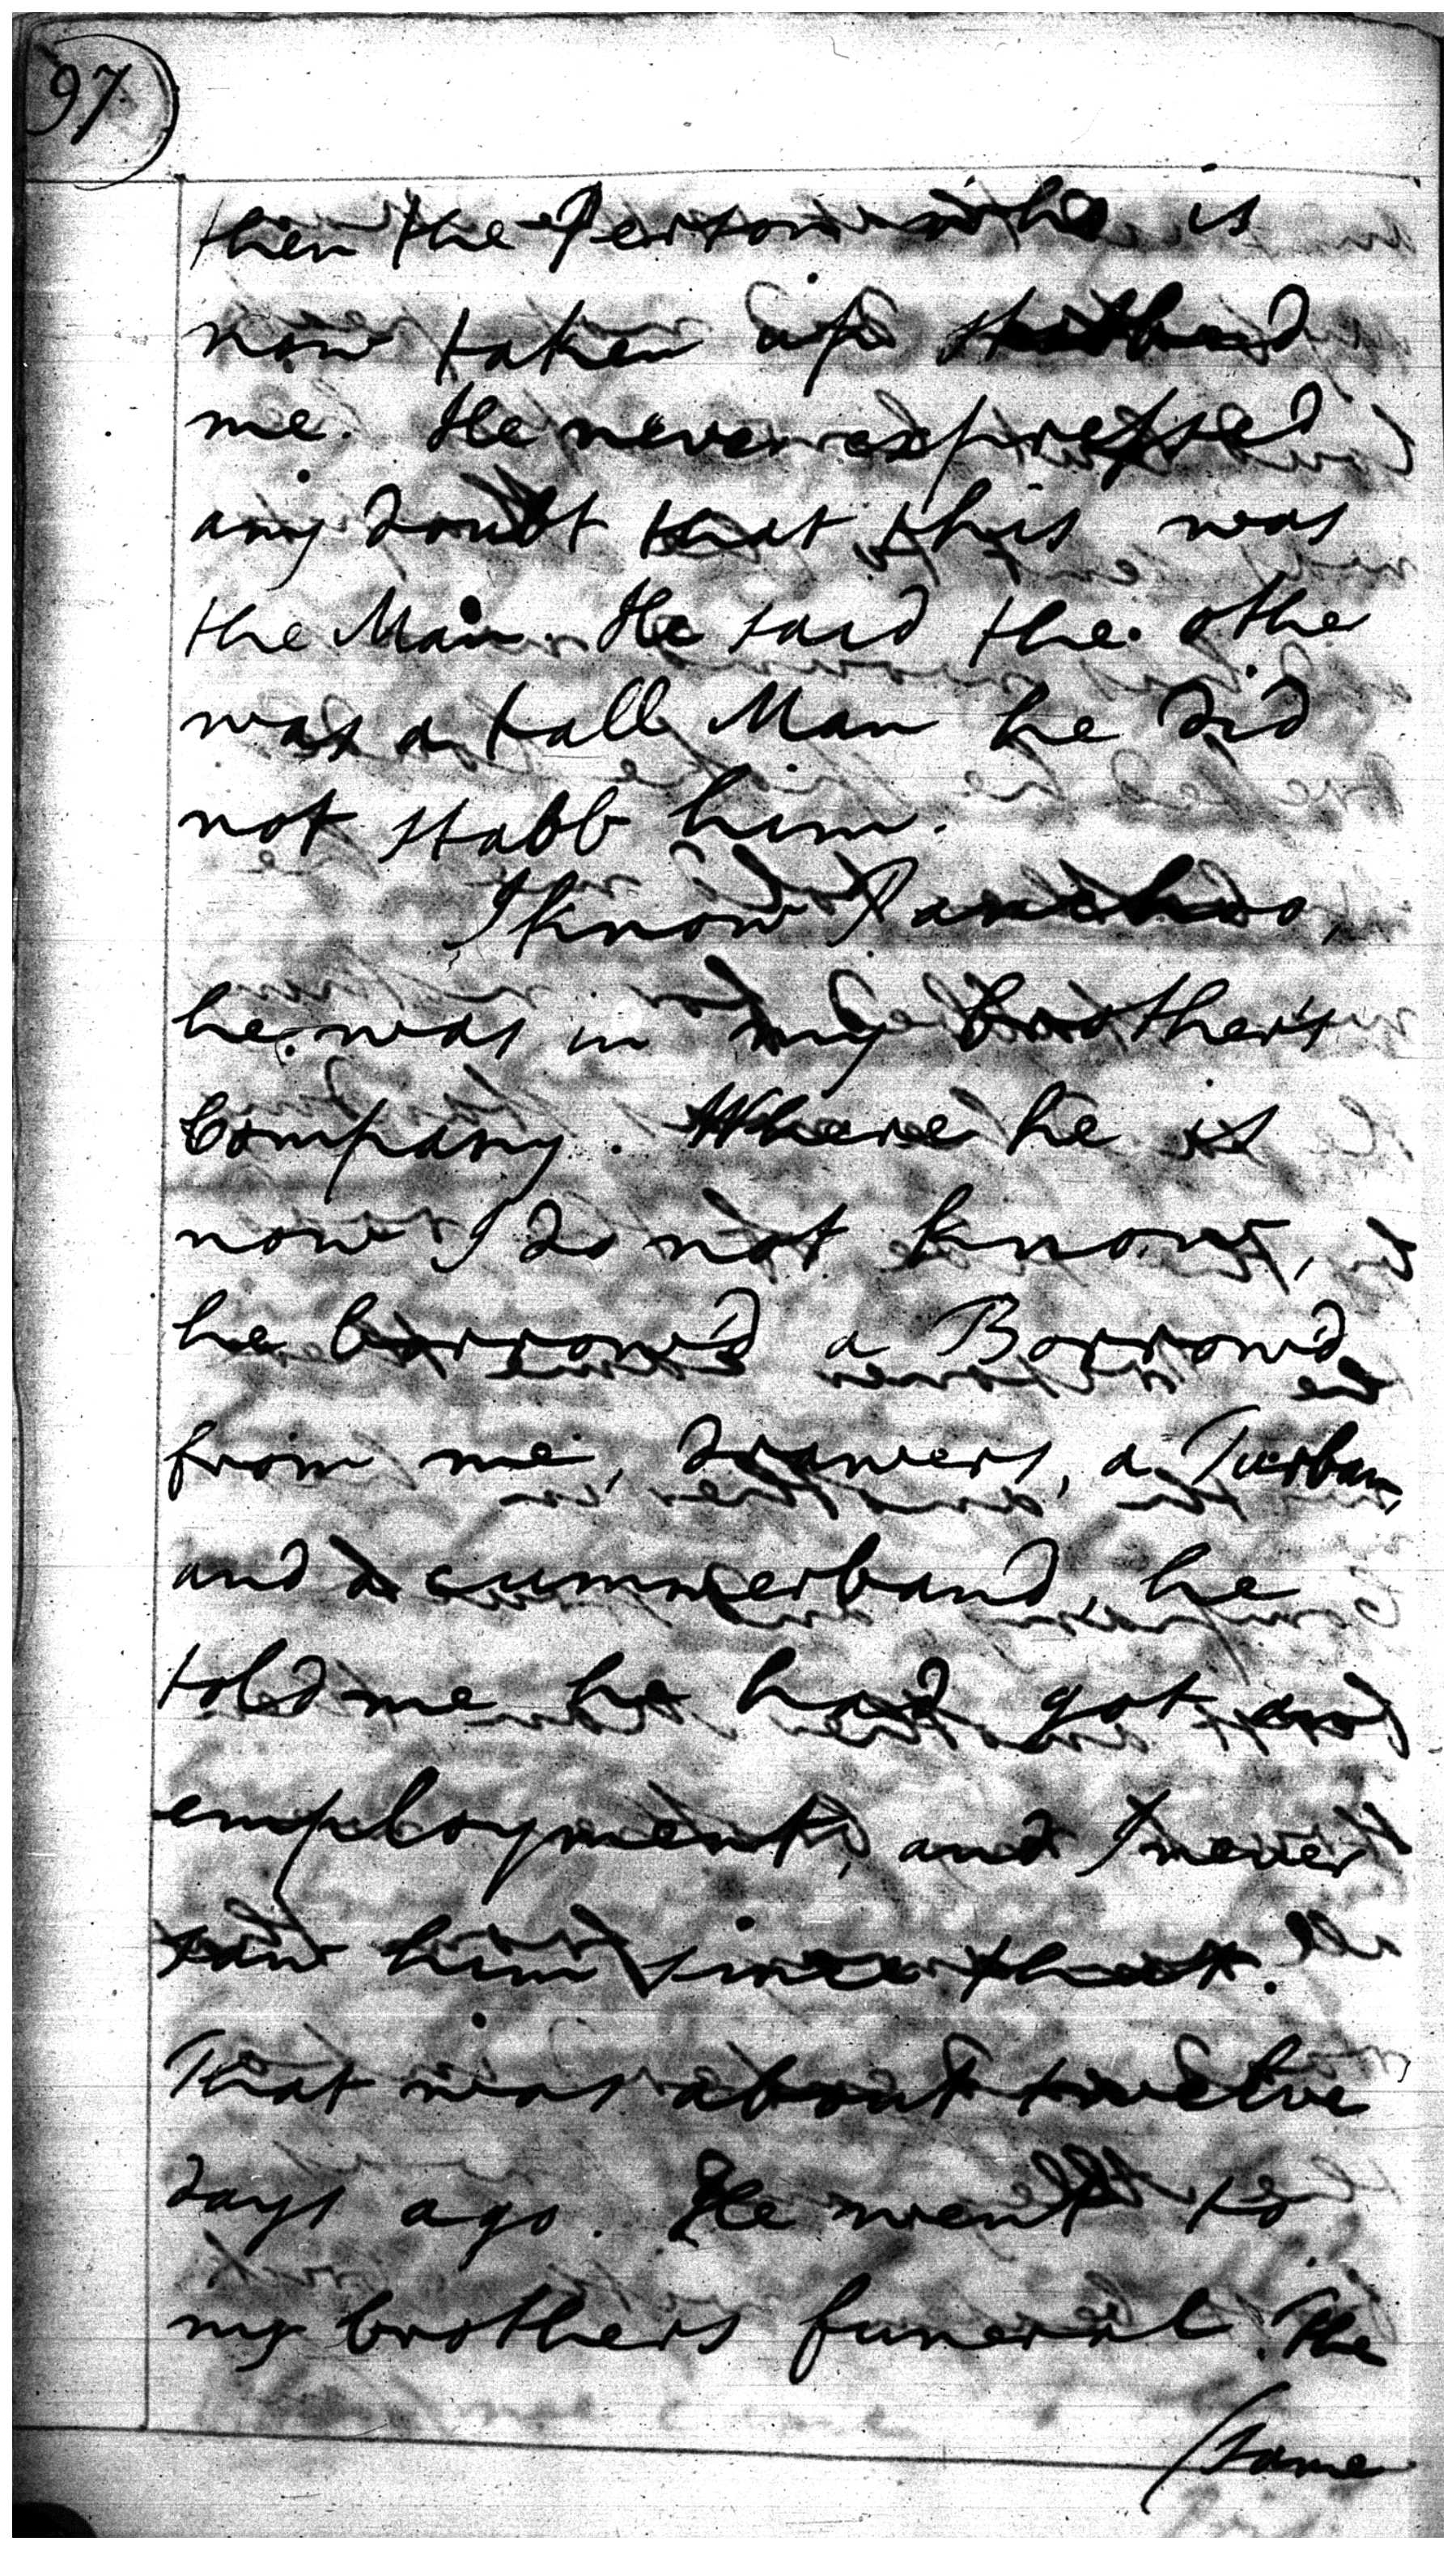 97
then the Person who is
now taken up stabbed
me. He never expressed
any doubt that this was
the Man. He said the othe
was a tall Man he did
not stabb him.
I know
he was in my brothers
Company. Where he is
now I do not know,
he borrow'd a Borrow'd
from me, drawers, a Turban,
and a cummerband, he
told me he had got
employment, and I never
saw him since that.
That was about twelve
days ago. He went to
my brothers funeral. The
(same